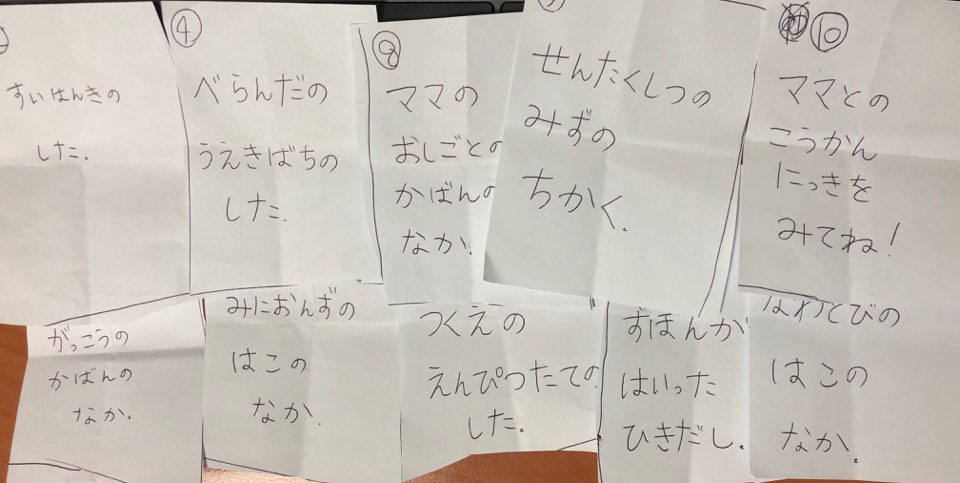 すいはんきの
した.
④
べらんだの
うえきばちの
した.
⑧
ママの
おしごとの
かばんの
なか.
せんたくしつの
みずの
ちかく.
⑩
ママとの
こうかん
にっきを
みてね!
がっこうの
かばんの
なか.
みにおんずの
はこの
なか.
つくえの
えんぴつたての
した.
ずほんが
はいった
ひきだし.
なわとびの
はこの
なか.